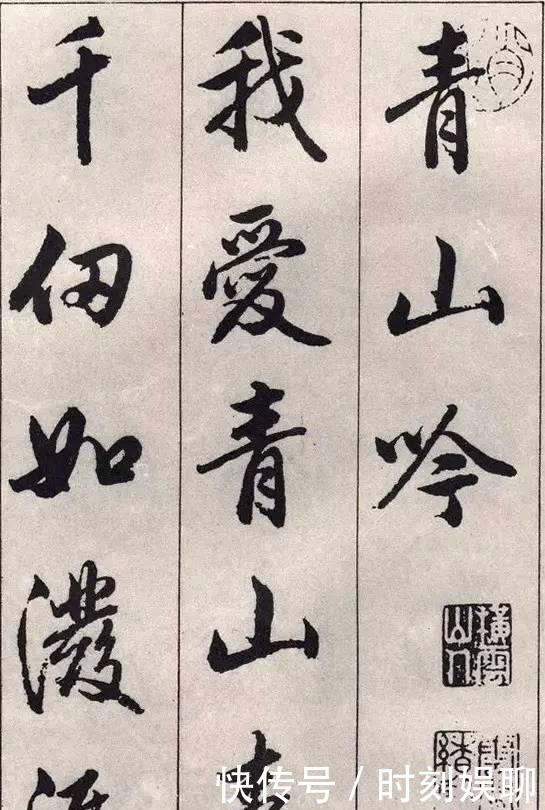 青山吟
橫雲山人
我愛青山
千仞如潑
快传号 / 时刻娱聊